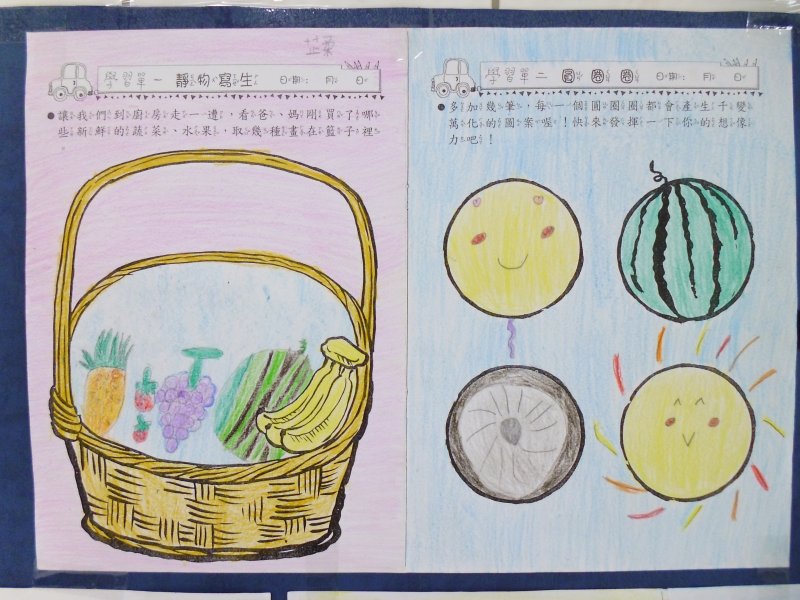 芷柔
學習單一 靜物寫生 日期: 月 日
●讓我們到廚房走一遭,看爸、媽剛買了哪
些新鮮的蔬菜、水果,取幾種畫在籃子裡
。
學習單二 圓圈圈 日期: 月 日
●多加幾筆,每一個圓圈圈都會產生千變
萬化的圖案喔!快來發揮一下你的想像
力吧!